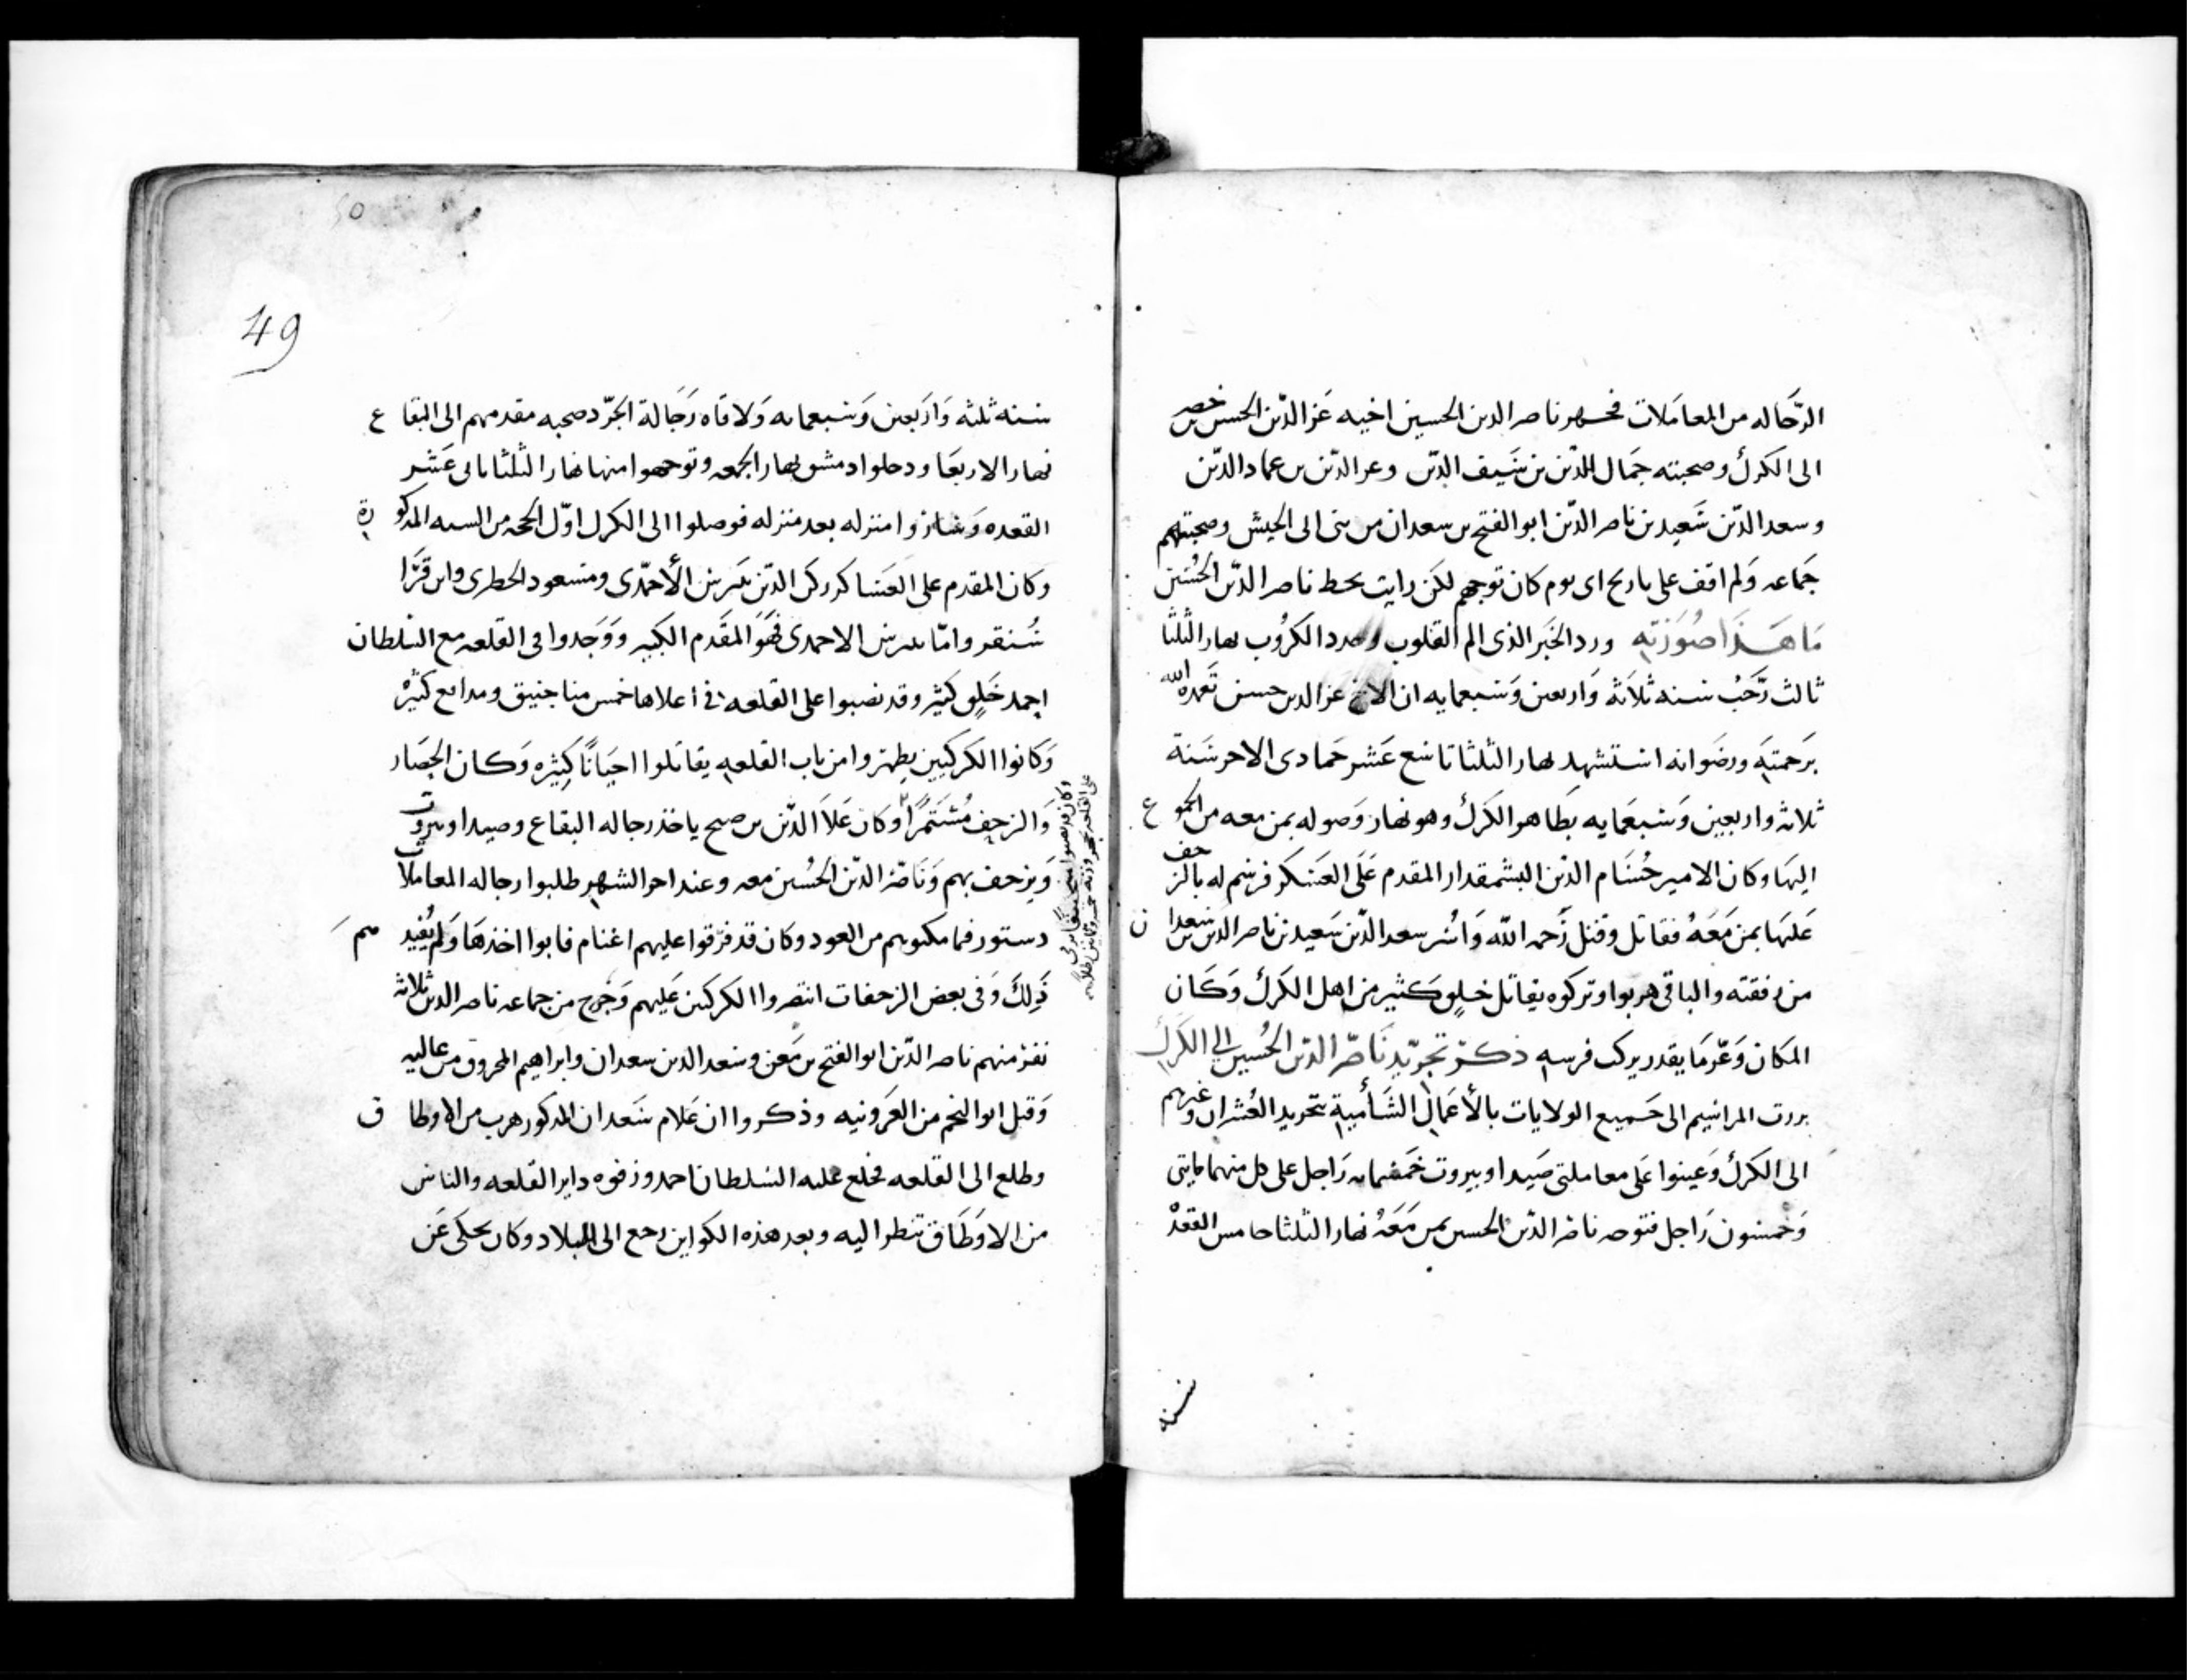 الرّجاله من المعاملات فجهز ناصر الدين الحسين اخيه عز الدّين الحسن بن خضر
الى الكرك وصحبته جمال الدّين بن سَيف الدّين وعز الدّين بن عماد الدّين
وسعد الدّين سَعيد بن ناصر الدّين ابو الفتح بن سعدان من بنى ابى الجيش وصحبتهم
جَماعه وَلم اقف على تاريخ اى يوم كان توجههم لكن رايت بخط ناصر الدّين الحُسَين
مَا هَذَا صُورَته ورد الخَبر الذى الم القلوب وجدد الكرُوب نهار الثلثا
ثالث رَجَب سنه ثلاَثه وَاربعين وَسَبعمايه ان الاخ عز الدين حسن تَغمده الله
بَرحمتِه ورضَوانه استشهد نهار الثلثا تاسَع عَشر جَمادى الاخر سَنة
ثلاثه واربعين وَسَبعمَايه بظاهر الكَرك وهو نهار وَصوله بمن معه من الجموع
اليهَا وكان الامير حُسَام الدّين البشمقدار المقدم عَلَى العَسَكر فرسَم له بالزحف
عَليهَا بمن مَعَهُ فقاتل وقتل رَحمه الله وَاسُر سعد الدّين سَعيد بن ناصر الدين بن سَعدان
من رفقته والباقى هربوا وتركوه يقاتل خلق كثير من اهل الكَرك وَكَان
المكان وَعْر مَا يقدر يركب فرسِه ذكر تجرِيد نَاصر الدّين الحُسَين الى الكَرك
بررت المراسَيم الى جَميع الولايات بالأعمَال الشَأمية بتجريد العُشران وغيرهم
الى الكَرك وَعينوا عَلى معاملتى صَيدا وبيروت خَمسمايه رَاجل على كل منهما مايتى
وَخمسَون رَاجل فتوجه ناصر الدّين الحسين بمن مَعَهُ نهار الثلثا خامس القعدة
سنه
49
سنه ثلثه وَاربَعين وَسَبعمايه وَلاقاه رَجَالة الجرد صحبه مقدمهم الى البقاع
نهار الاربعَا ودخلوا دمشق نهار الجمعه وتوجهوا منها نهار الثلثا ثانى عَشر
القعده وَسَاروا منزله بعد منزله فوصلوا الى الكرك اوّل الحجه من السنه المذكورة
وكان المقدم على العَسَاكر ركن الدّين بيبرس الأحمّدى ومسعود الخطيرى وابن قَرَا
سُنقر وامّا بيبرس الاحمدى فَهَوَ المقَدم الكبير وَوَجَدوا فى القلعه مع السَلطان
احمد خَلق كثير وقد نصبوا على القلعه فى اعلاها خمس مناجنيق ومدافع كثيره
وَكانوا الكركيين يظهروا من باب القلعه يقاتلوا احيَانًا كثيره وَكان الحِصَار
وَالزحِف مُسْتَمرًا وكان عَلاَ الدّين بن صبح ياخذ رجاله البقاع وصيدا وبيروت
وَيزحف بهم وَنَاصر الدّين الحُسَين معه وعند اخر الشهر طلبوا رجاله المعاملات
دستور فما مكنوهم من العود وكان قد فرّقوا عليهم اغنام فابوا اخذهَا وَلم يُفيدهم
ذَلكَ وَفى بعض الزحفات انتصروا الكركيين عَليهم وَجُرح من جماعه ناصر الدين ثلاثه
نفر منهم ناصر الدّين ابو الفتح بن مَعن وسَعد الدين سعدان وابراهيم المحروق من عاليه
وَقتل ابو النجم من العَرونيه وذكروا ان غلام سَعدان المذكور هرب من الاوطاق
وطلع الى القلعه فخلع عليه السَلطان احمد وزفوه داير القلعه والناس
من الاوَطَاق تنظر اليه وبعد هذه الكواين رجع الى البلاد وكان يحكى عَن